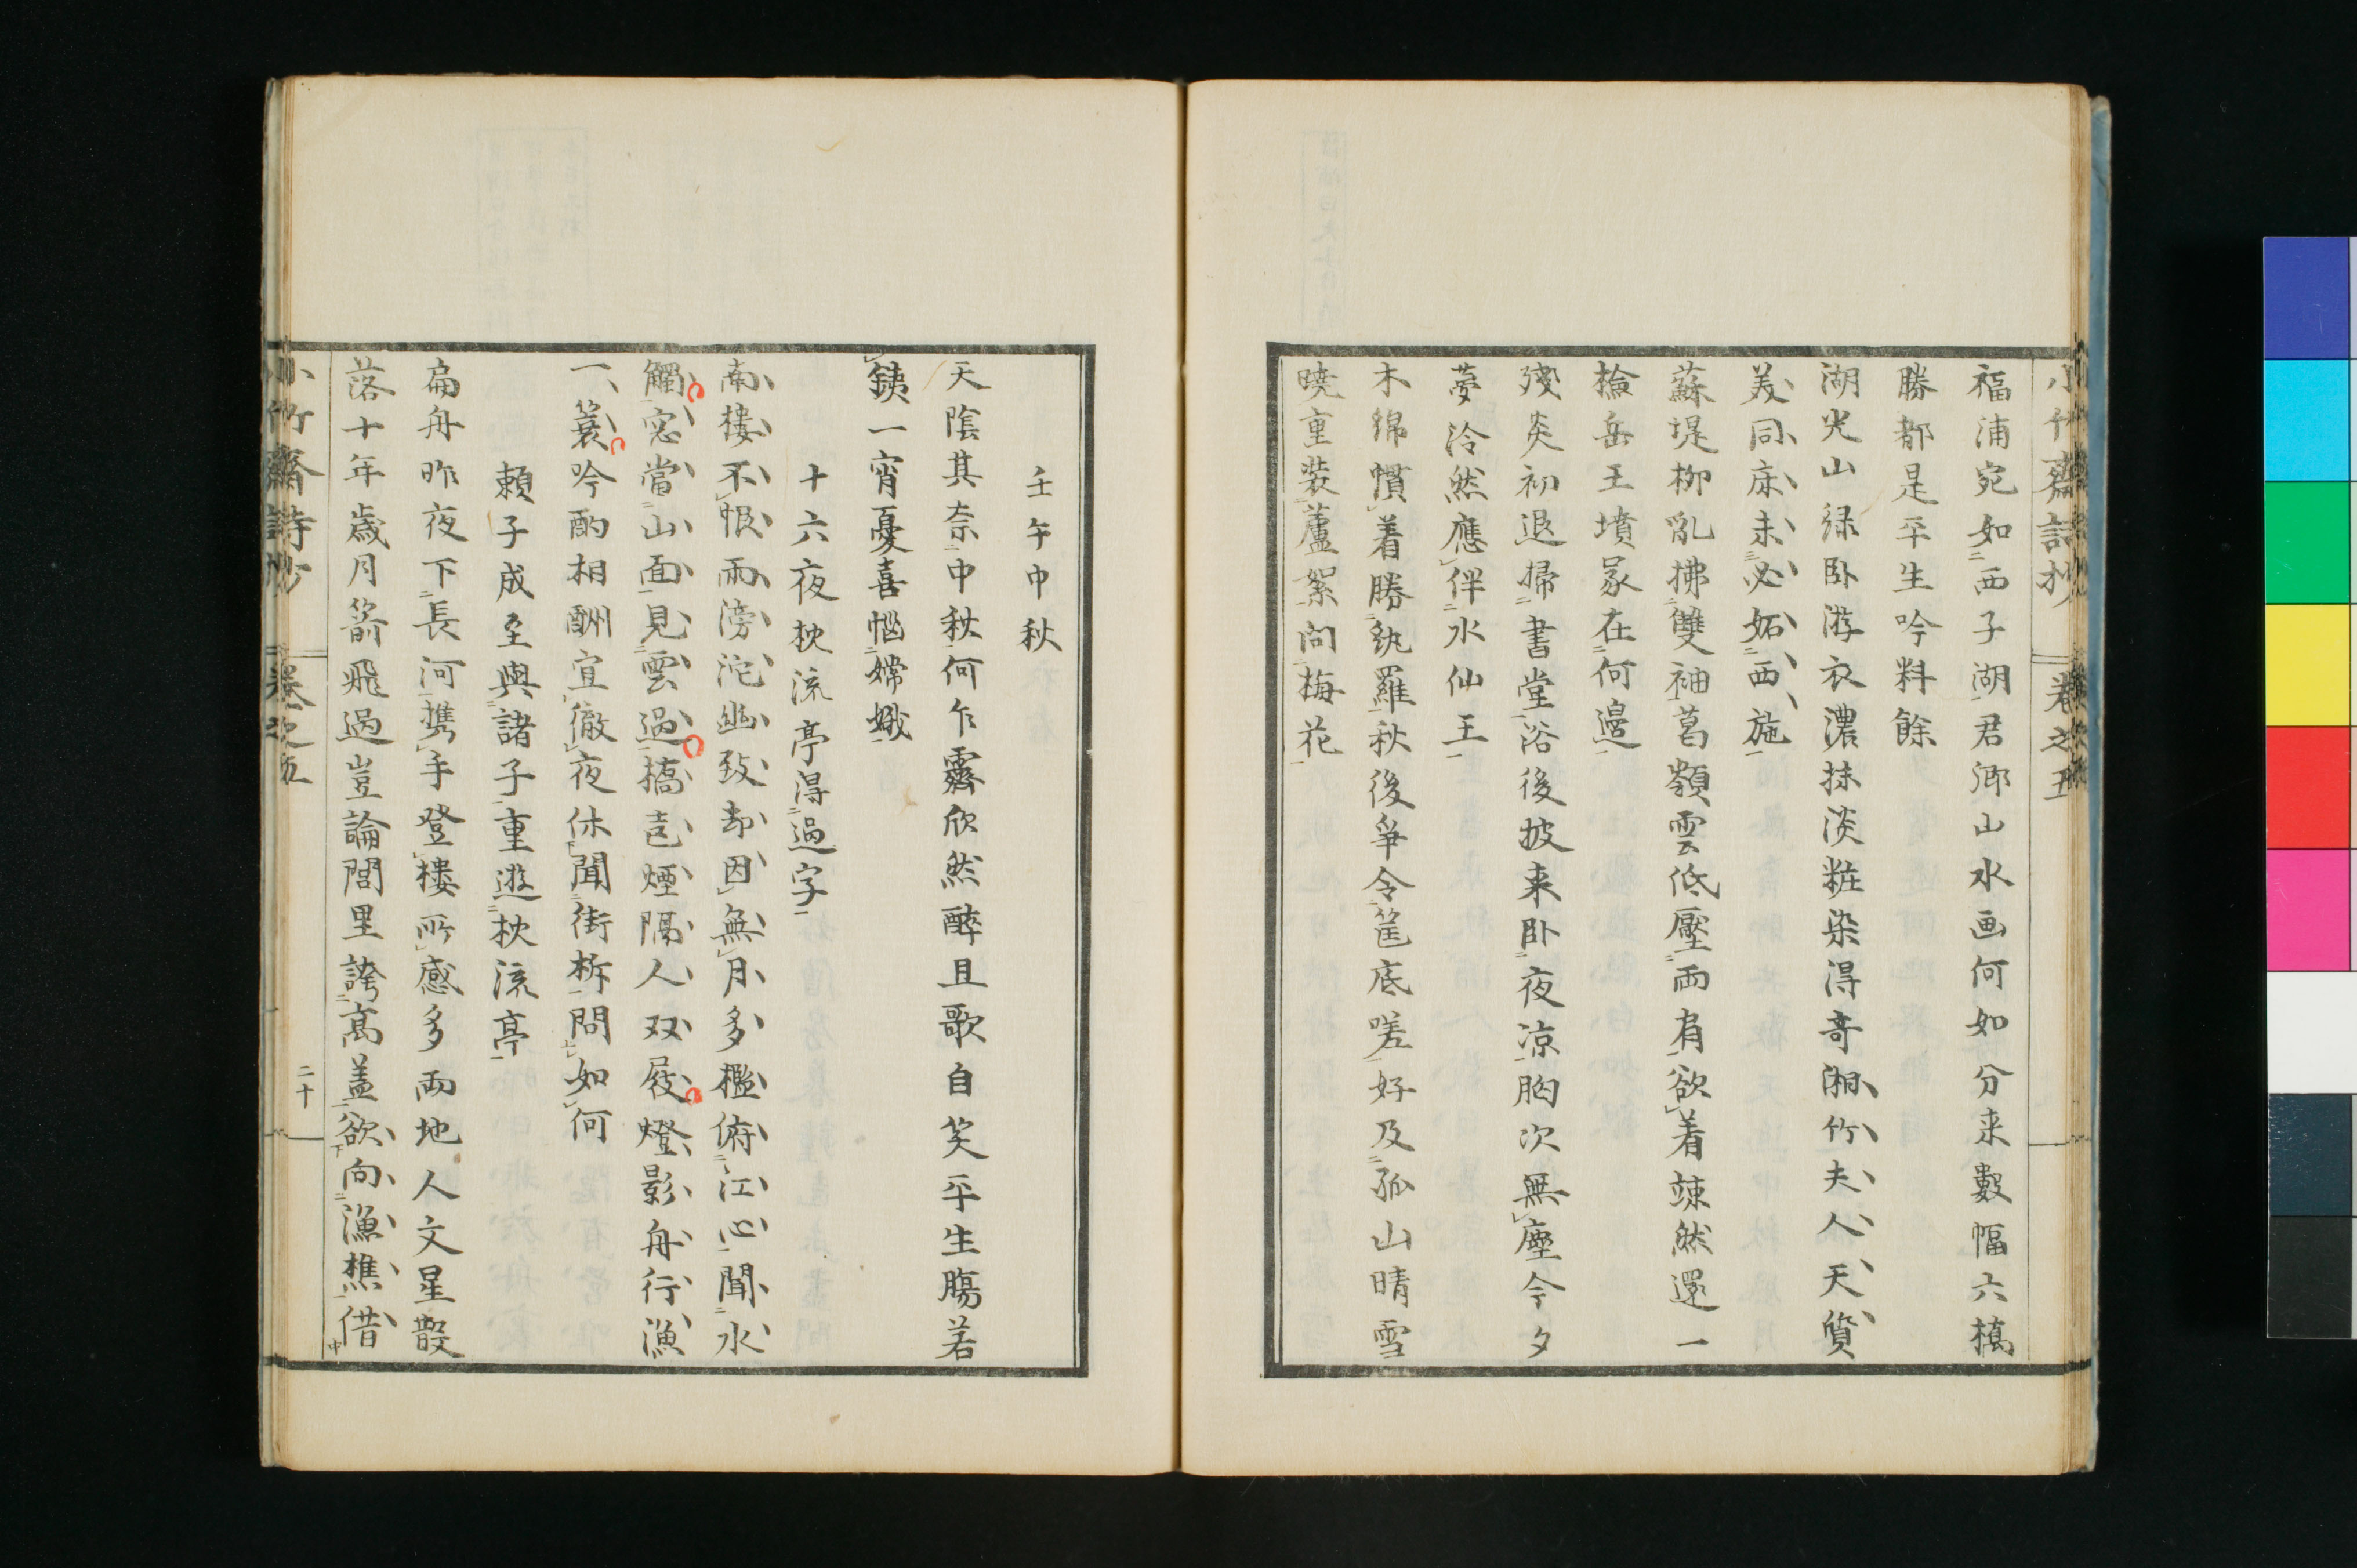 小竹齋詩抄 卷之五
福浦宛如西子湖君郷山水画何如分来數幅六橋
勝都是平生吟料餘
湖光山緑卧游衣濃抹淡粧染得奇湘竹夫人天質
美同床未必妬西施
蘇堤柳乱拂雙袖葛嶺雲低壓両肩欲着竦然還一
撿岳王墳冢在何邉
残炎初退掃書堂浴後披来卧夜凉胸次無塵今夕
夢冷然應伴水仙王
木綿慣着勝紈羅秋後争令筐底嗟好及孤山晴雪
曉重装蘆絮問梅花
壬午中秋
天陰其奈中秋何乍霽欣然醉且歌自笑平生腸若
鐵一宵憂喜惱嫦娥
十六夜枕流亭得過字
南樓不恨雨滂沱幽致却因無月多檻俯江心聞水
觸窓當山面見雲過橋危煙隔人双屐燈影舟行漁
一簑吟酌相酬宜徹夜休聞街柝問如何
頼子成至與諸子重遊枕流亭
扁舟昨夜下長河携手登樓所感多両地人文星散
落十年歳月箭飛過豈論閭里誇高盖欲向漁樵借
小竹齋詩抄 卷之五
二十